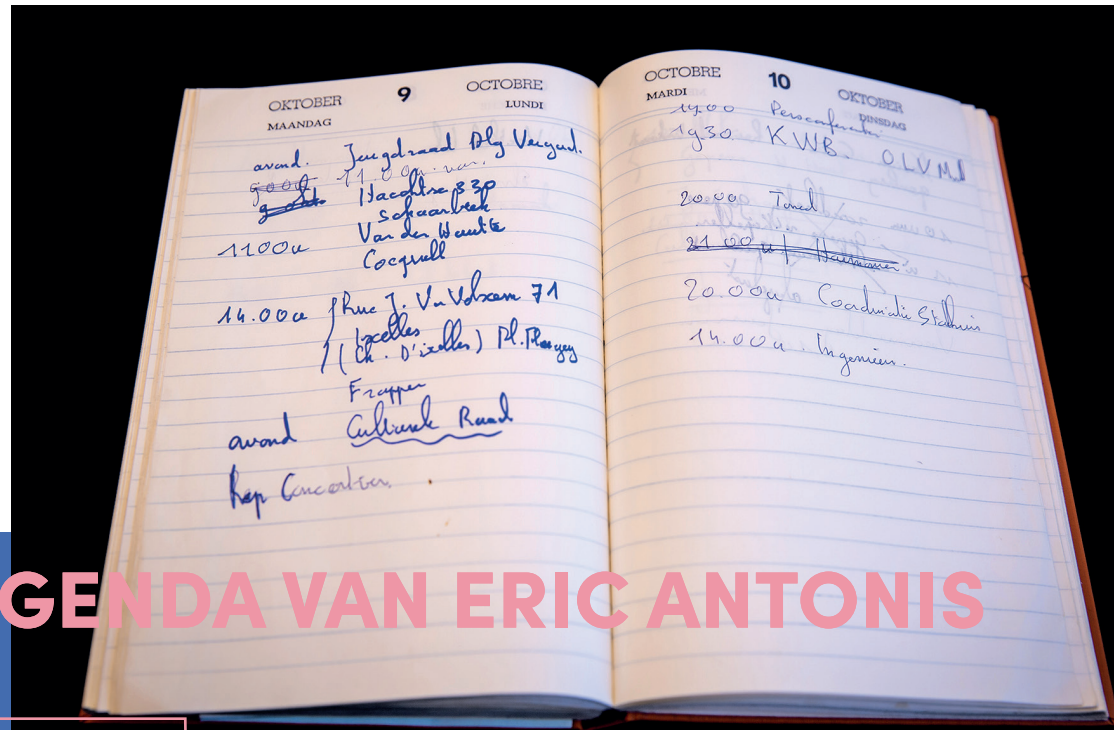 OKTOBER 9 OCTOBRE
MAANDAG LUNDI
avond. Jeugdraad Alg Vergad.
11.00u van
Haachtse 330
Schaarbeek
11 00u Van der
Cocq
14.00u Rue J. Van Volxem 71
Ixelles
(Ch. D'ixelles) Pl. Flagey
Frapper
avond Culturele Raad
Rep Concert
OCTOBRE 10 OKTOBER
MARDI DINSDAG
19.00 Persconferentie
19.30 KWB. OLVM
20.00 Toneel
21 00u
20.00u Coordinatie
14.00u Ingenieur.
GENDA VAN ERIC ANTONIS